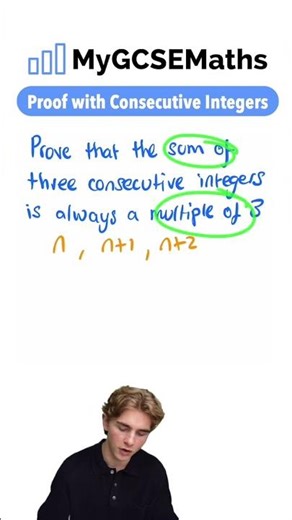 MyGCSEMaths
Proof with Consecutive Integers
Prove that the sum of
three consecutive integers
is always a multiple of 3
n , n+1 , n+2